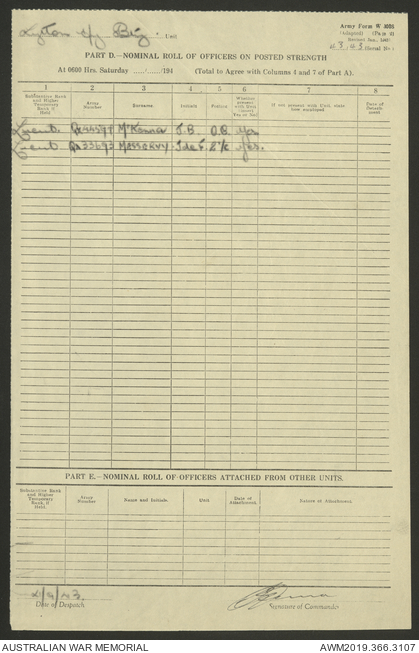 Army Form W 3008
(Adapted) (Page 2)
Lytton Bty Unit
43.43 (Serial No.)
PART D.—NOMINAL ROLL OF OFFICERS ON POSTED STRENGTH
At 0600 Hrs. Saturday ....../....../194 (Total to Agree with Columns 4 and 7 of Part A).
1 2 3 4 5 6 7 8
Substantive Rank and Higher Temporary Rank if Held
Army Number
Surname
Initials
Position
Whether present with Unit (Insert Yes or No)
If not present with Unit, state how employed
Date of Detachment
Lieut. McKenna J.B. O.C. Yes
Lieut Yes.
PART E.—NOMINAL ROLL OF OFFICERS ATTACHED FROM OTHER UNITS.
Substantive Rank and Higher Temporary Rank, if Held.
Army Number
Name and Initials.
Unit
Date of Attachment.
Nature of Attachment.
4/9/43.
Date of Despatch
Signature of Commander
AUSTRALIAN WAR MEMORIAL
AWM2019.366.3107